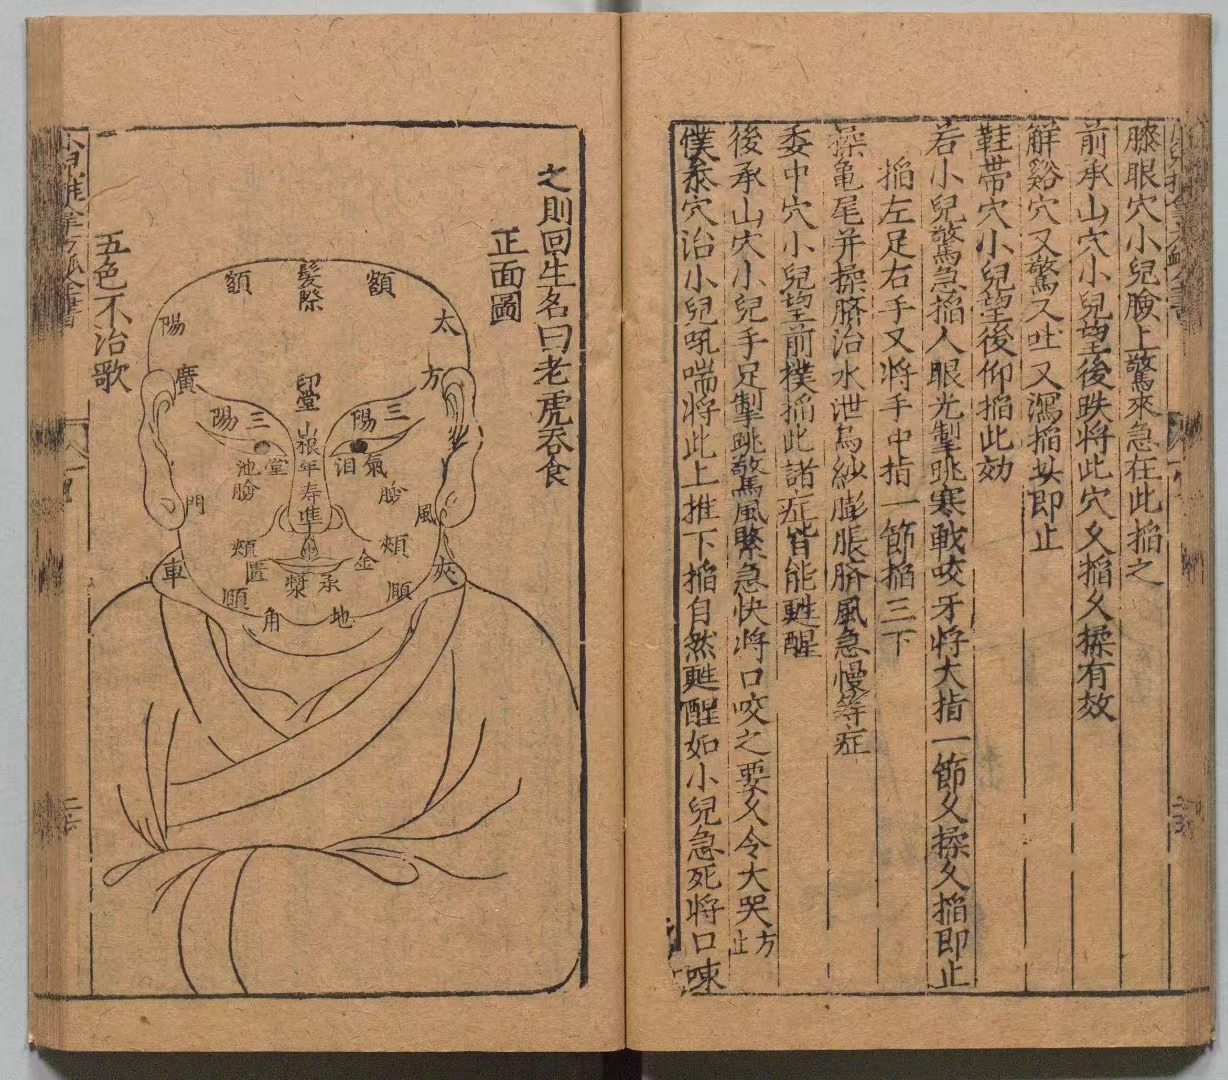 膝眼穴小兒臉上驚來急在此掐之
前承山穴小兒望後跌將此穴久掐久揉有效
觧谿穴又驚又吐又瀉掐此即止
鞋帶穴小兒望後仰掐此効
若小兒驚急掐人眼光掣跳寒戰咬牙將大指一節久揉久掐即止
掐左足右手又將手中指一節掐三下
揉亀尾并揉臍治水泄烏紗膨脹臍風急慢等症
委中穴小兒望前撲掐此諸症皆能甦醒
後承山穴小兒手足掣跳驚風緊急快將口咬之要久令大哭方止
僕叅穴治小兒吼喘將此上推下掐自然甦醒如小兒急死將口咬
之則回生名曰老虎吞食
正面圖
額 髮際 額
太陽
太陽
方廣
印堂
三陽
三陽
山根
年壽
準
氣池
淚堂
臉
臉
風門
頰
頰
金匱
承漿
頤
頤
夾車
地角
五色不治歌